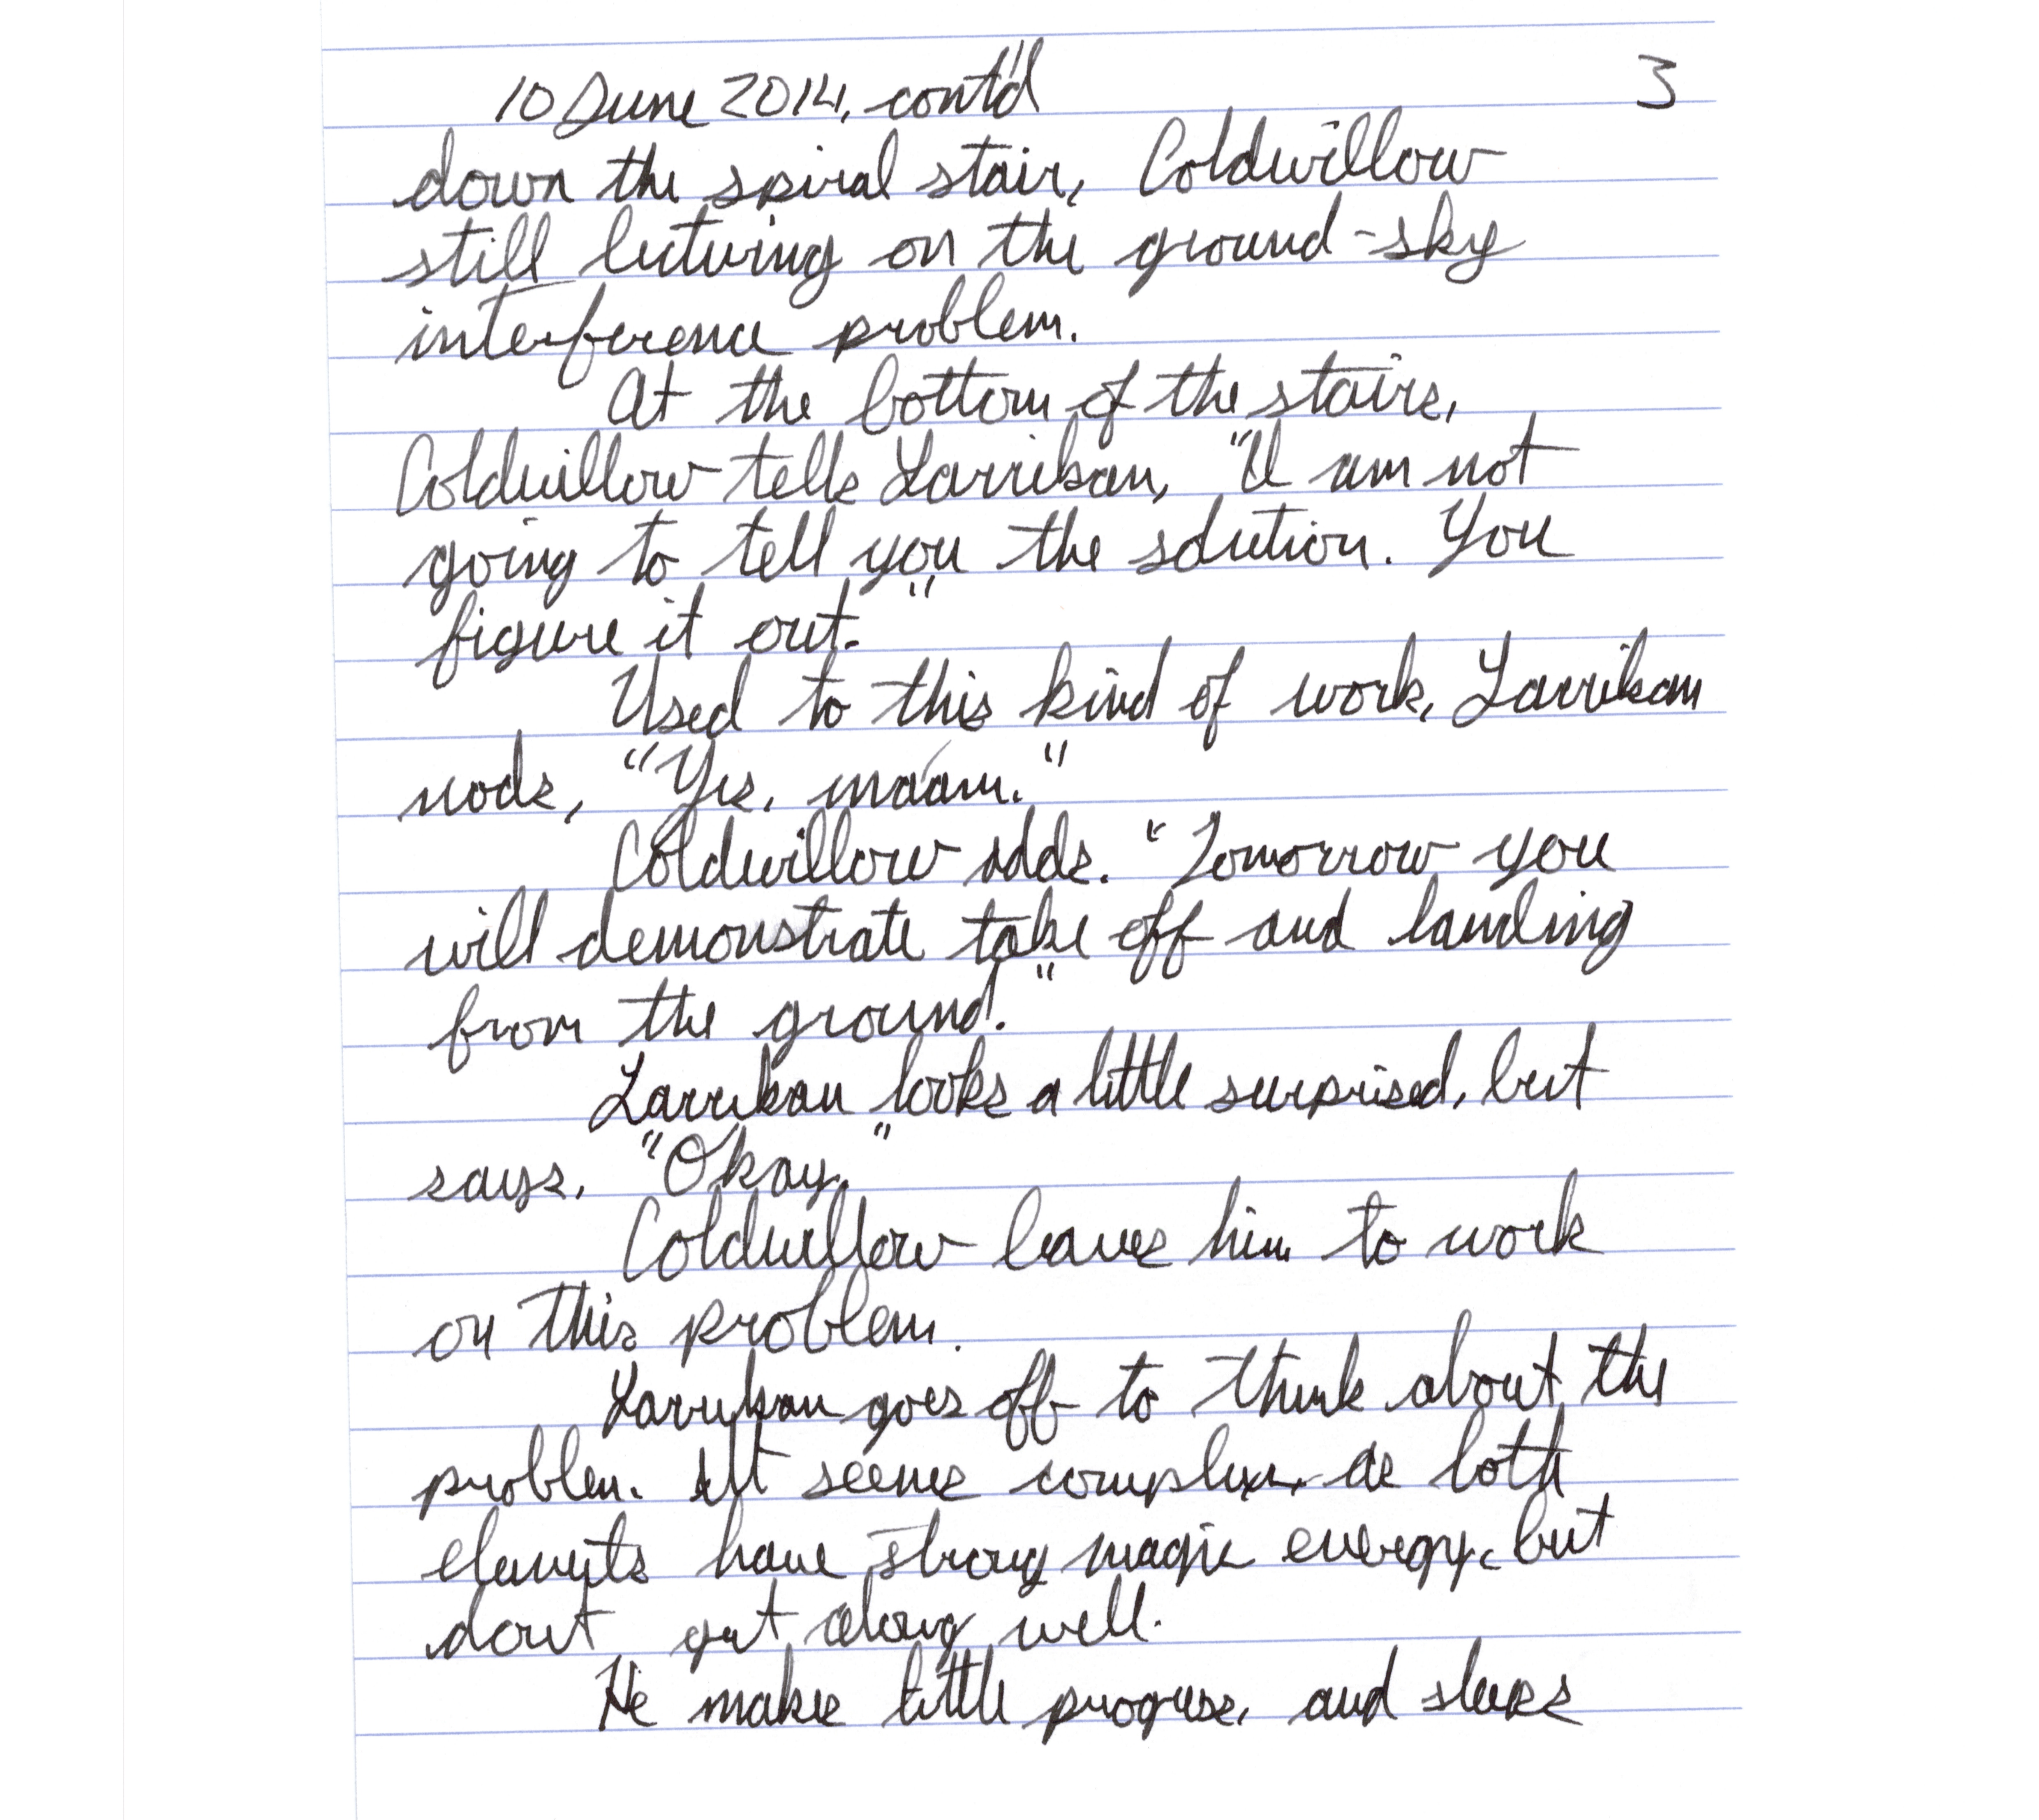 10 June 2014, cont'd 3
down the spiral stair, Coldwillow
still lecturing on the ground-sky
interference problem.
At the bottom of the stairs,
Coldwillow tells Larrikan, "I am not
going to tell you the solution. You
figure it out."
Used to this kind of work, Larrikan
nods, "Yes, ma'am."
Coldwillow adds. "Tomorrow you
will demonstrate take off and landing
from the ground."
Larrikan looks a little surprised, but
says, "Okay."
Coldwillow leaves him to work
on this problem.
Larrikan goes off to think about the
problem. It seems complex, as both
elements have strong magic energy, but
don't get along well.
He makes little progress, and sleeps